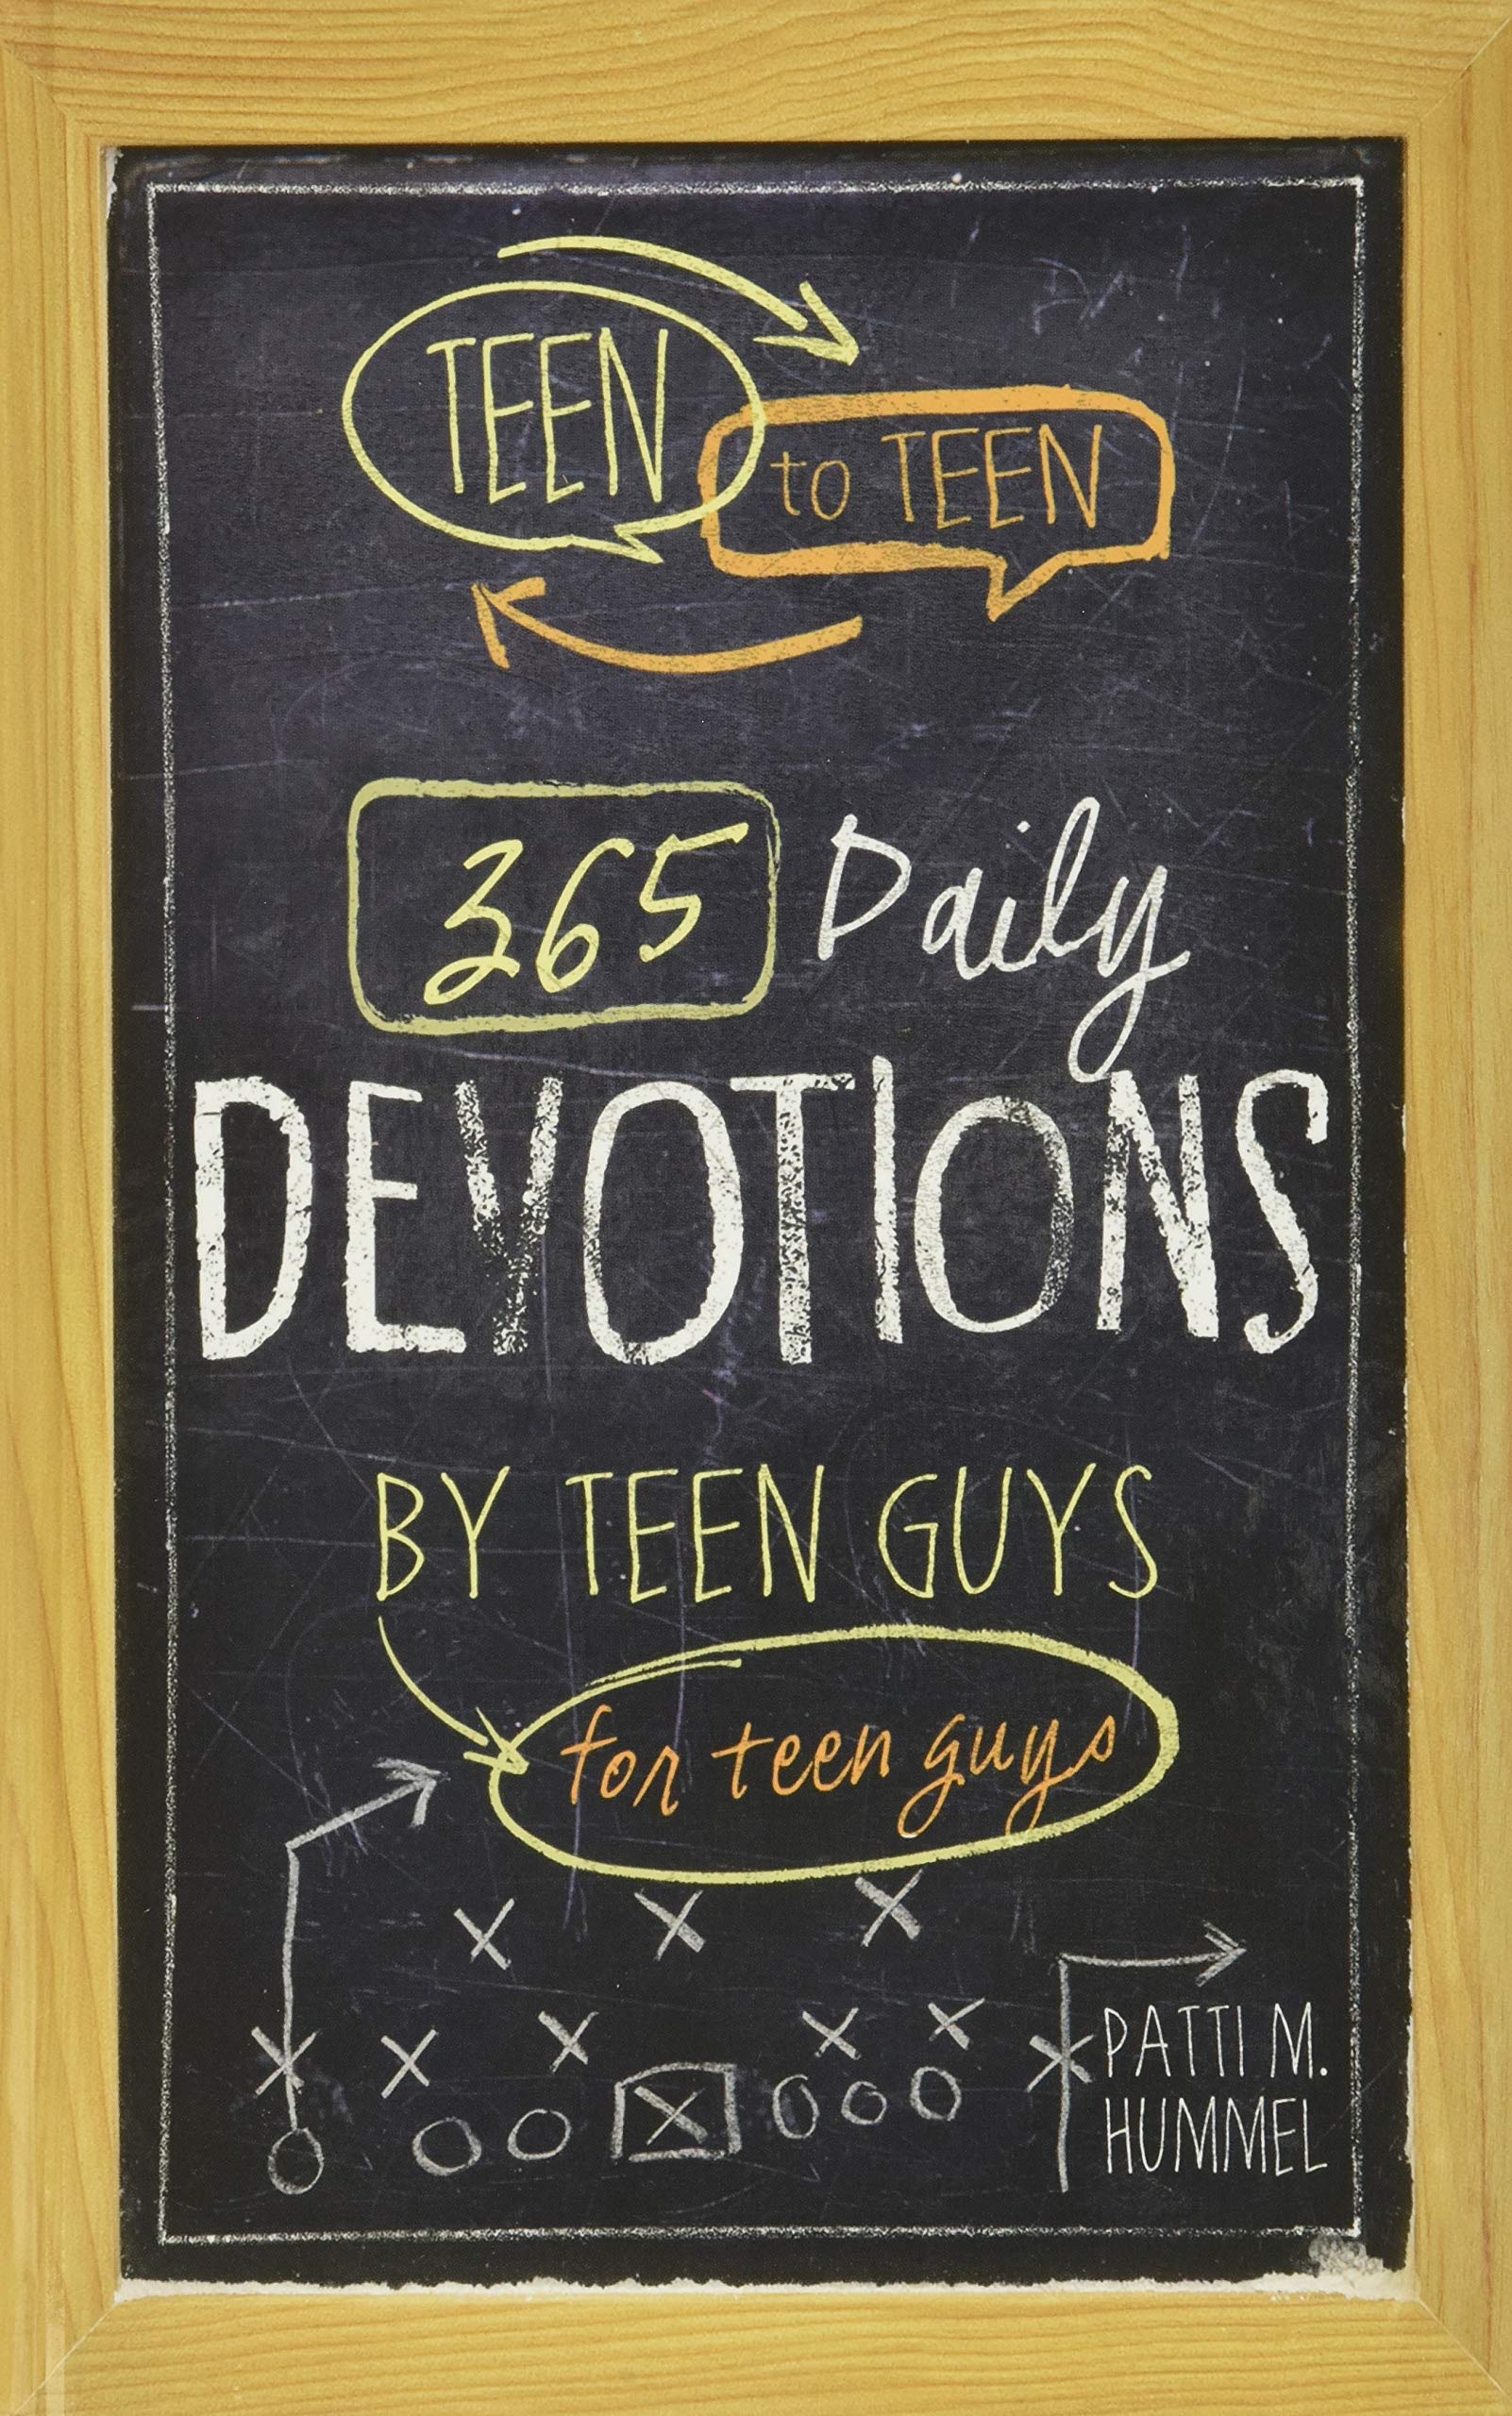 TEEN
to TEEN
365 Daily
DEVOTIONS
BY TEEN GUYS
for teen guys
PATTI M.
HUMMEL